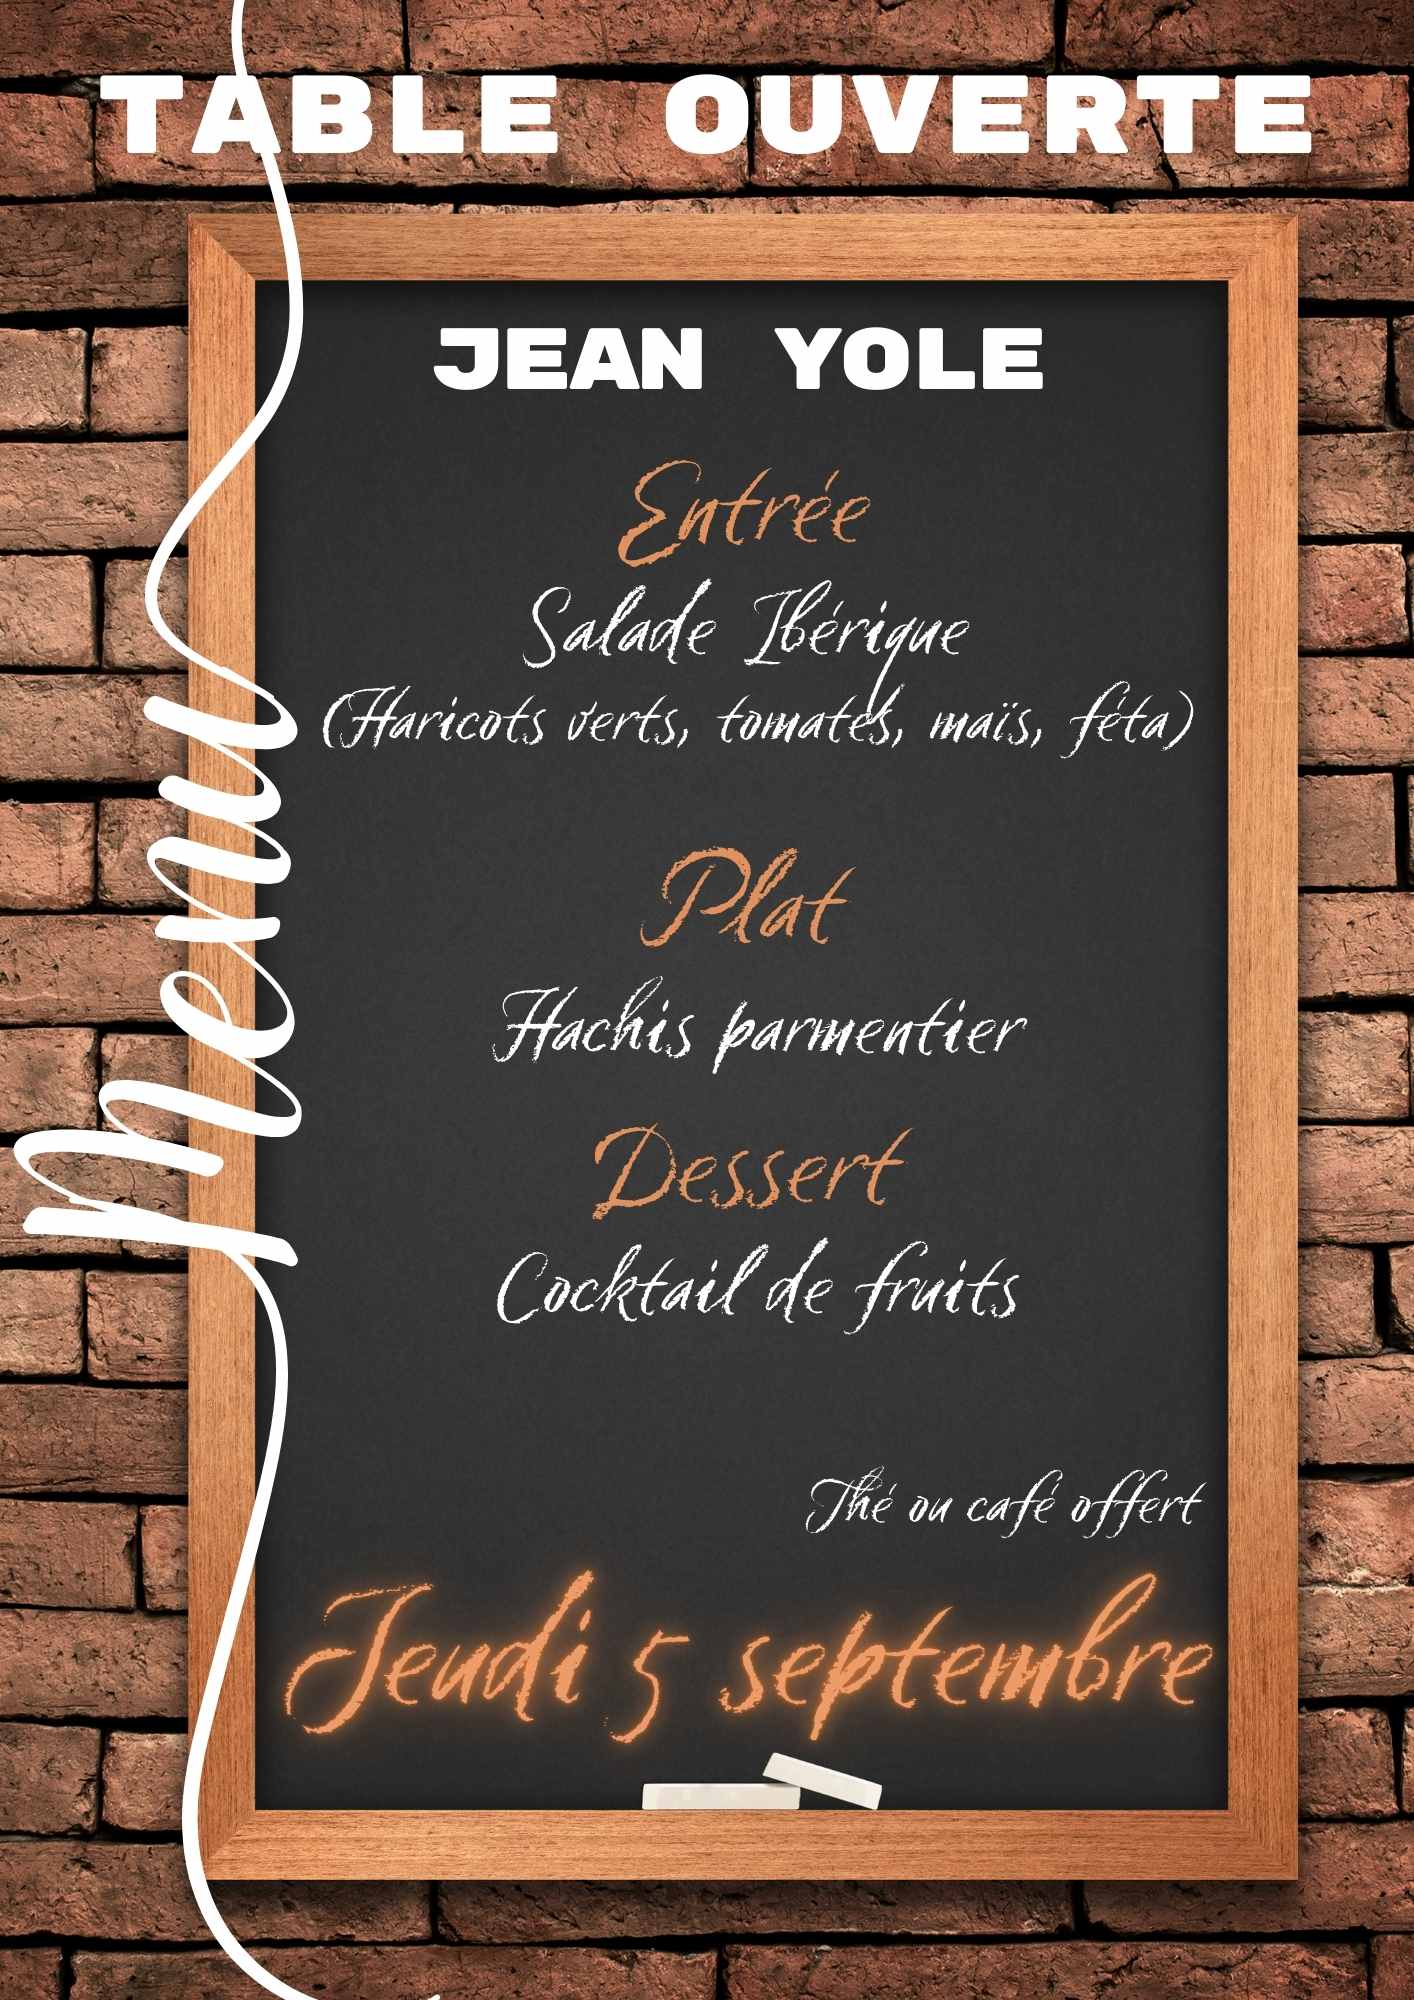 TABLE OUVERTE
JEAN YOLE
Menu
Entrée
Salade Ibérique
(Haricots verts, tomates, maïs, féta)
Plat
Hachis parmentier
Dessert
Cocktail de fruits
Thé ou café offert
Jeudi 5 septembre